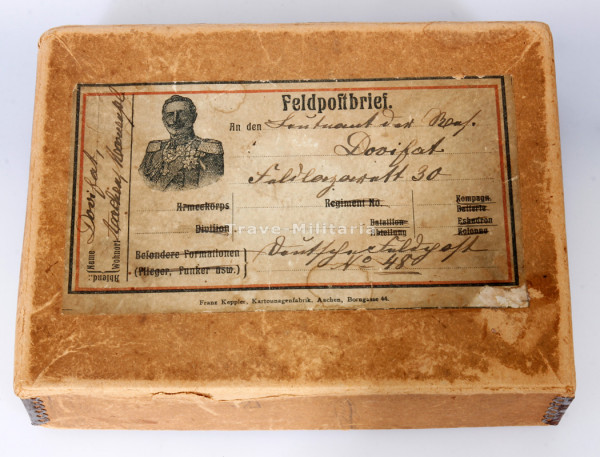 Feldpostbrief.
An den Leutnant der Res.
Dovifat
Feldlazarett 30
Armeekorps
Regiment No.
Kompage
Batterie
Division
Bataillon
Abteilung
Eskadron
Kolonne
Besondere Formationen
(Flieger, Funker usw.)
Deutsche Feldpost
No 480
Franz Keppler, Kartonnagenfabrik, Aachen, Borngasse 44.
Absend.:
Name Dovifat,
Wohnort
Trave Militaria